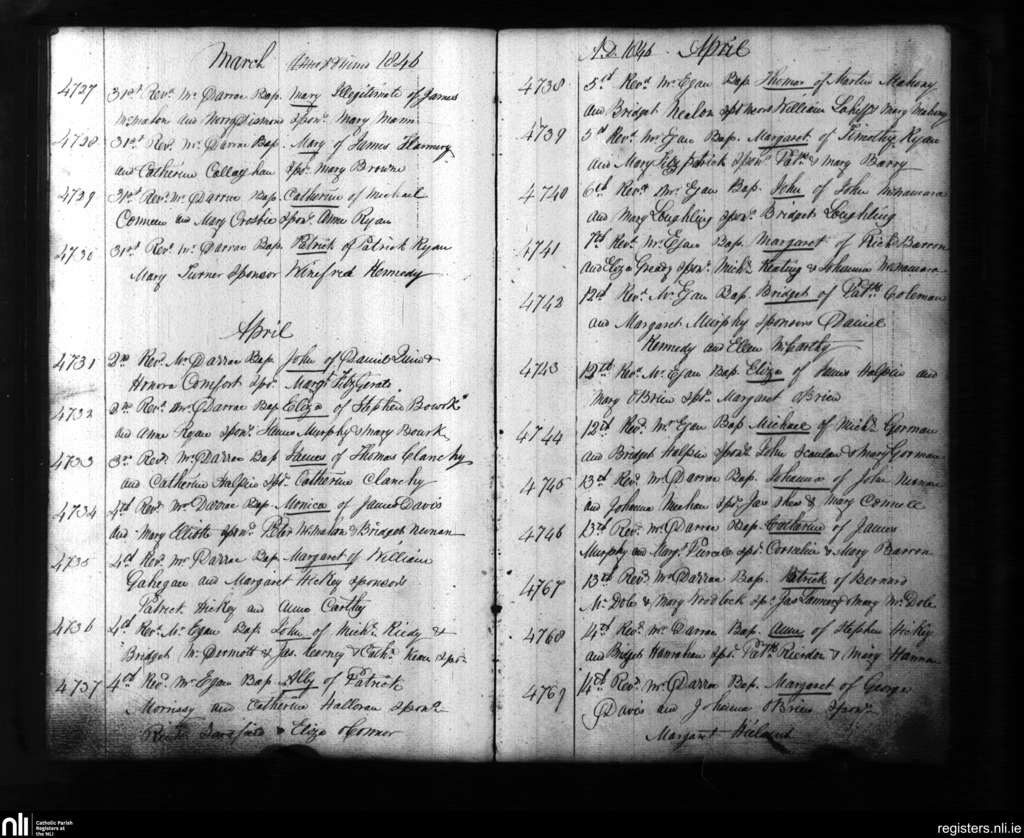 March Anno Domini 1846
4727 31st Revd. Mr Darrac Bap. Mary Illegitimate of James
McMahon and Mary sponr. Mary Mann
4728 31st. Revd. Mr Darrac Bap. Mary of James Flannery
and Catherine Callaghan spr. Mary Browne
4729 31st Revd. Mr Darrac Bap. Catherine of Michael
and Mary Crosbie sponr. Anne Ryan
4730 31st Revd. Mr Darrac Bap. Patrick of Patrick Ryan
Mary Turner sponsor Winefred Kennedy
April
4731 2nd Revd. Mr Darrac Bap. John of Daniel &
Honora Comfort spr. Margt. FitzGerald
4732 2nd Revd. Mr Darrac Bap. Eliza of Stephen Bourk
and Anne Ryan sponr. James Murphy & Mary Bourk
4733 3rd Revd. Mr Darrac Bap. James of Thomas Clanchy
and Catherine Halpin spr. Catherine Clanchy
4734 4th Revd. Mr Darrac Bap. Monica of James Davis
and Mary Elliott sponr. Peter McMahon & Bridget
4735 4th Revd. Mr Darrac Bap. Margaret of William
Gahegan and Margaret Hickey sponsors
Patrick Hickey and Anne Carthy
4736 4th Revd. Mr Egan Bap. John of Michl. Riedy &
Bridget McDermott & Jas. Kearney & Cath. Kean spr.
4737 4th Revd. Mr Egan Bap. Ally of Patrick
and Catherine Halloran sponr.
& Eliza Connor
A.D. 1846 April
4738 5th Revd. Mr Egan Bap. Thomas of Martin Mahony
and Bridget Nealon William & Mary Mahony
4739 5th Revd. Mr Egan Bap. Margaret of Timothy Ryan
and Mary Fitzpatrick sponr. Patk. & Mary Barry
4740 6th Revd. Mr Egan Bap. John of John McNamara
and Mary Loughling sponr. Bridget Loughling
4741 7th Revd. Mr Egan Bap. Margaret of Richd. Barron
and Eliza Gready sponr. Michl. Keating & Johanna McNamara
4742 12th Revd. Mr Egan Bap. Bridget of Patk. Coleman
and Margaret Murphy sponsors Daniel
Kennedy and Ellen McCarthy
4743 12th Revd. Mr Egan Bap. Eliza of James Halpin and
Mary O'Brien spr. Margaret O'Brien
4744 12th Revd. Mr Egan Bap. Michael of Michl. Gorman
and Bridget Halpin sponr. John Scanlan & Mary Gorman
4745 13th Revd. Mr Darrac Bap. Johanna of John
and Johanna Meehan spr. Jas Shea & Mary Connell
4746 13th Revd. Mr Darrac Bap. Catherine of James
Murphy and Margt. spr. Cornelius & Mary Barron
4767 13th Revd. Mr Darrac Bap. Patrick of Bernard
McDole & Mary Wodlock spr. Jas & Mary McDole
4768 14th Revd. Mr Darrac Bap. Anne of Stephen Hickey
and Bridget Hanrahan spr. Patk. Riordan & Mary Hannan
4769 14th Revd. Mr Darrac Bap. Margaret of George
Davis and Johanna O'Brien sponr.
Margaret
nli Catholic Parish
Registers at
the NLI
registers.nli.ie